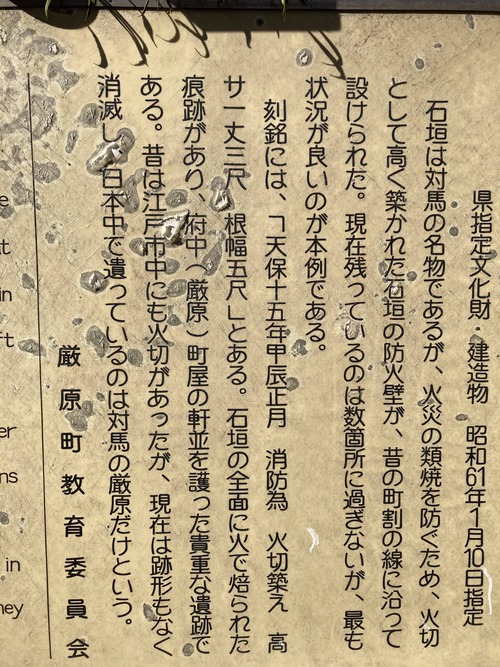 県指定文化財・建造物　昭和61年1月10日指定
石垣は対馬の名物であるが、火災の類焼を防ぐため、火切
として高く築かれた石垣の防火壁が、昔の町割の線に沿って
設けられた。現在残っているのは数箇所に過ぎないが、最も
状況が良いのが本例である。
刻銘には、「天保十五年甲辰正月　消防為　火切築え　高
サ一丈三尺　根幅五尺」とある。石垣の全面に火で焙られた
痕跡があり、府中（厳原）町屋の軒並を護った貴重な遺跡で
ある。昔は江戸市中にも火切があったが、現在は跡形もなく
消滅し、日本中で遺っているのは対馬の厳原だけという。
厳原町教育委員会